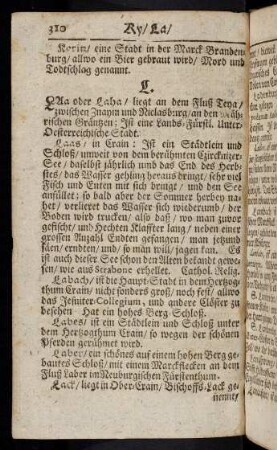 310 Ky/ La/
Korin/ eine Stadt in der Marck Branden
burg/ allwo ein Bier gebraut wird/ Mord und
Todtschlag genannt.
L.
LAa oder Laha/ liegt an dem Fluß Teya/
zwischen Znaym und Niclasburg/ an den Mäh-
rischen Gräntzen: Ist eine Lands-Fürstl. Unter-
Oesterreichische Stadt.
Laas/ in Crain: Ist ein Städtlein und
Schloß/ unweit von dem berühmten Czircknitzer-
See/ daselbst jährlich und das End des Herb-
stes/ das Wasser gehling heraus dringt/ sehr viel
Fisch und Enten mit sich bringt/ und den See
anfüllet; so bald aber der Sommer herbey na-
het/ verlieret das Wasser sich wiederumb/ der
Boden wird trucken/ also daß/ wo man zuvor
gefischt/ und Hechten Klaffter lang/ neben einer
grossen Anzahl Endten gefangen/ man jetzund
säen/ erndten/ und/ so man will/ jagen kan. Es
ist auch dieser See schon den Alten bekandt gewe-
sen/ wie aus Strabone erhellet. Cathol. Relig.
Labach/ ist die Haupt-Stadt in dem Hertzog-
thum Crain/ nicht sonders groß/ noch fest/ allwo
das Jesuiter-Collegium, und andere Clöster zu
besehen. Hat ein hohes Berg-Schloß.
Labes/ ist ein Städtlein und Schloß unter
dem Hertzogthum Crain/ so wegen der schönen
Pferden gerühmet wird.
Laber/ ein schönes auf einem hohen Berg ge-
bautes Schloß/ mit einem Marckflecken an dem
Fluß Laber im Neuburgischen Fürstenthum.
Lack/ liegt in Ober-Crain/ Bischoffs-Lack ge-
nennet/